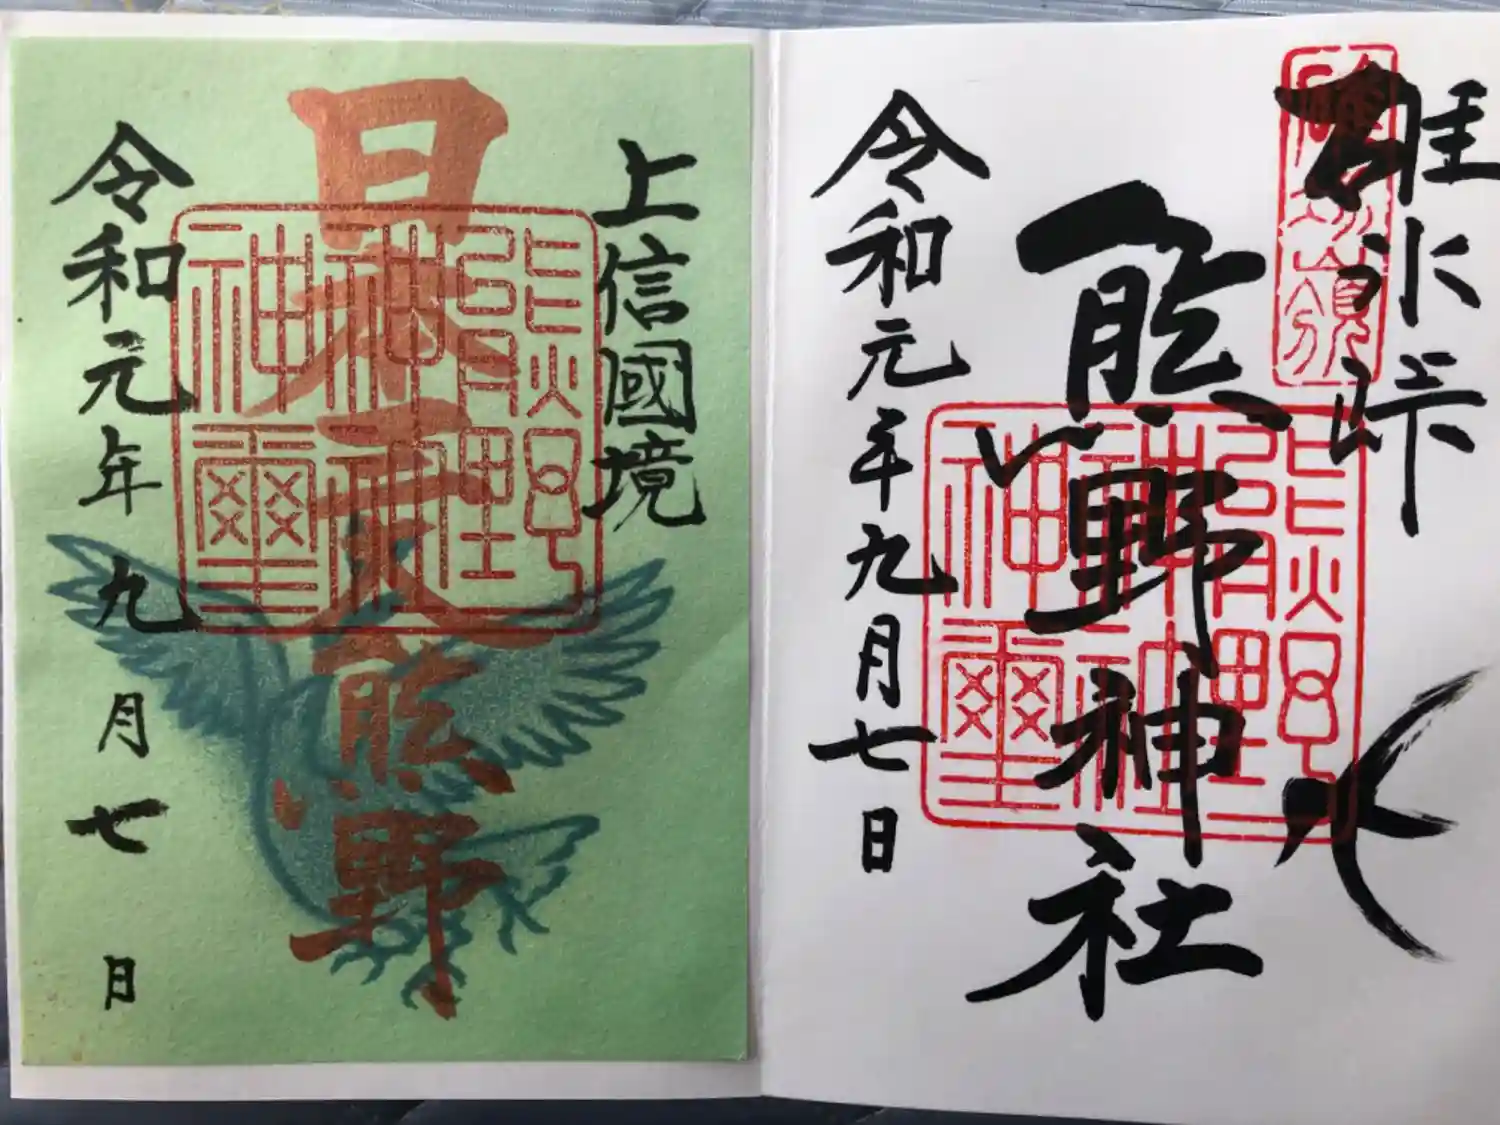 碓氷峠
碓氷嶺
熊野神社
熊野
神社
神璽
令和元年九月七日
上信國境
日本三大熊野
熊野
神社
神璽
令和元年九月七日